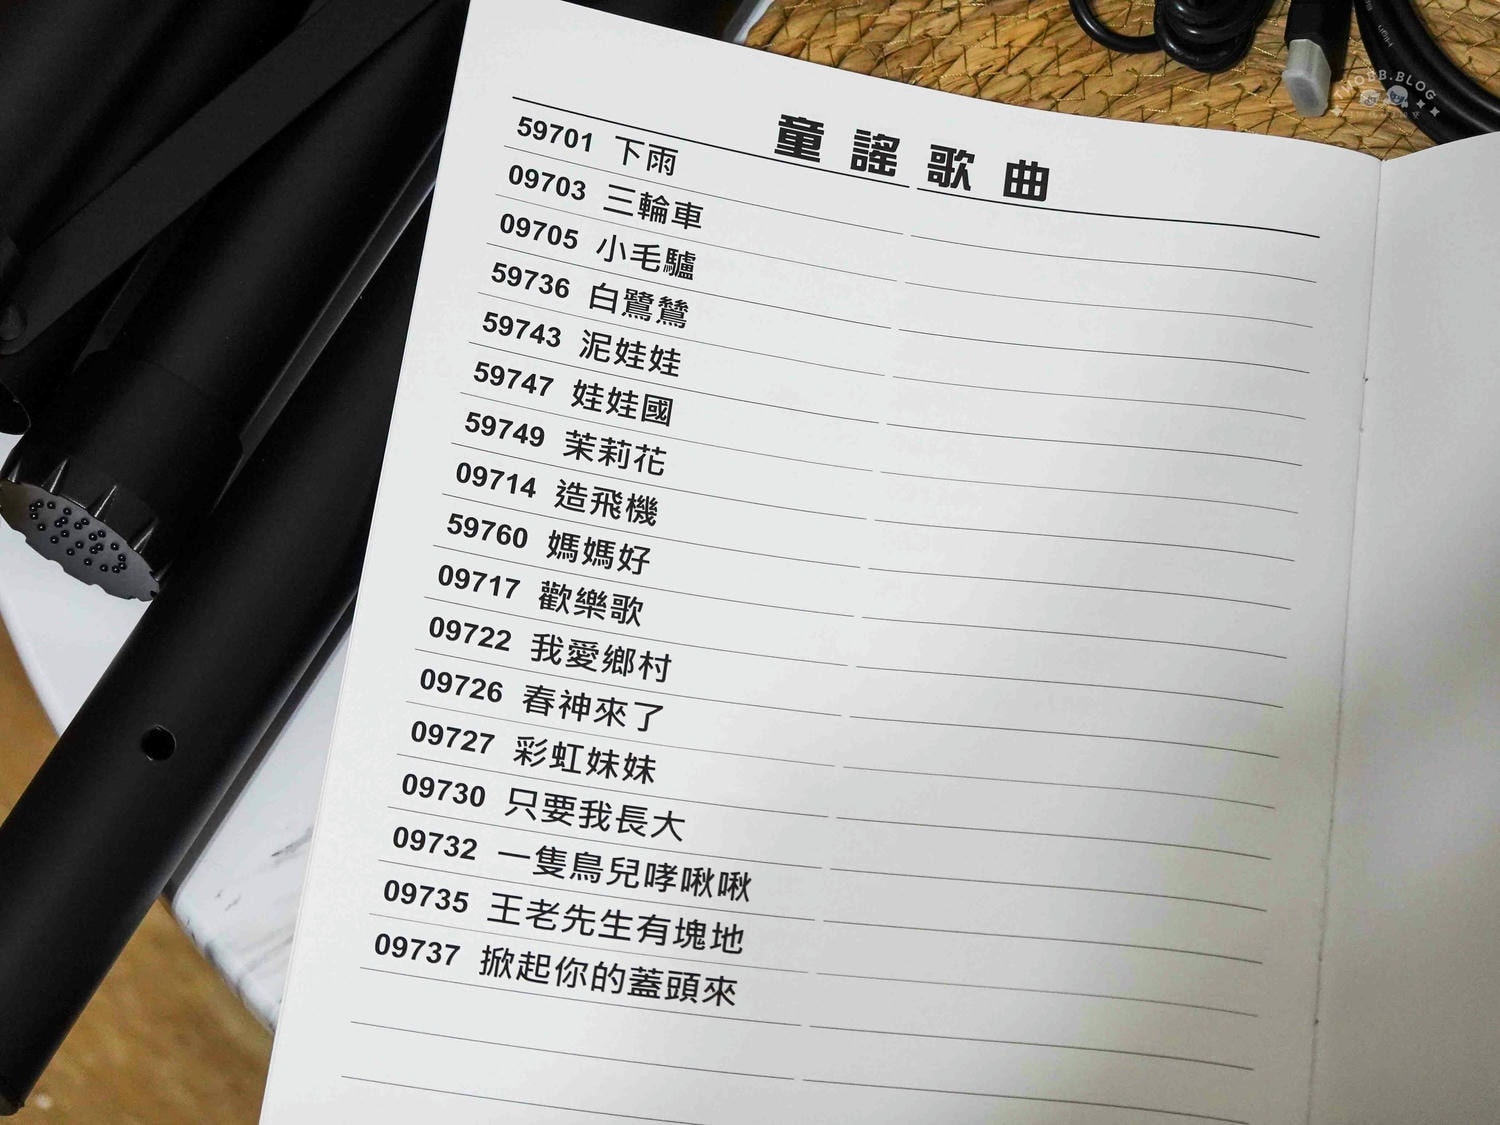 童謠歌曲
59701 下雨
09703 三輪車
09705 小毛驢
59736 白鷺鷥
59743 泥娃娃
59747 娃娃國
59749 茉莉花
09714 造飛機
59760 媽媽好
09717 歡樂歌
09722 我愛鄉村
09726 春神來了
09727 彩虹妹妹
09730 只要我長大
09732 一隻鳥兒哮啾啾
09735 王老先生有塊地
09737 掀起你的蓋頭來
TWOBB.BLOG